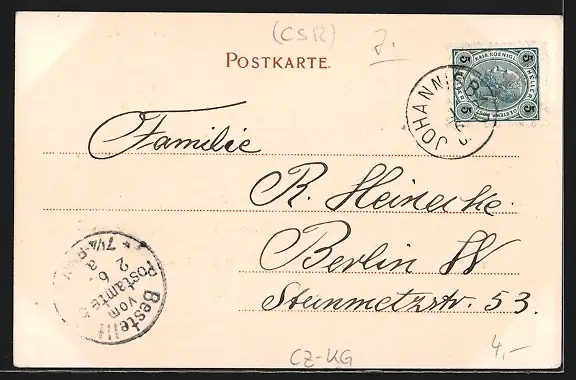 (CSR)
7.
POSTKARTE.
5 5
KAIS. KOENIGL.
HELLER
5 5
JOHANNISB
Familie
R. Heinecke.
Berlin W
Steinmetzstr. 53.
Bestellt
vom
Postamte
2 6.
* 7¼-8
4,–
CZ-KG